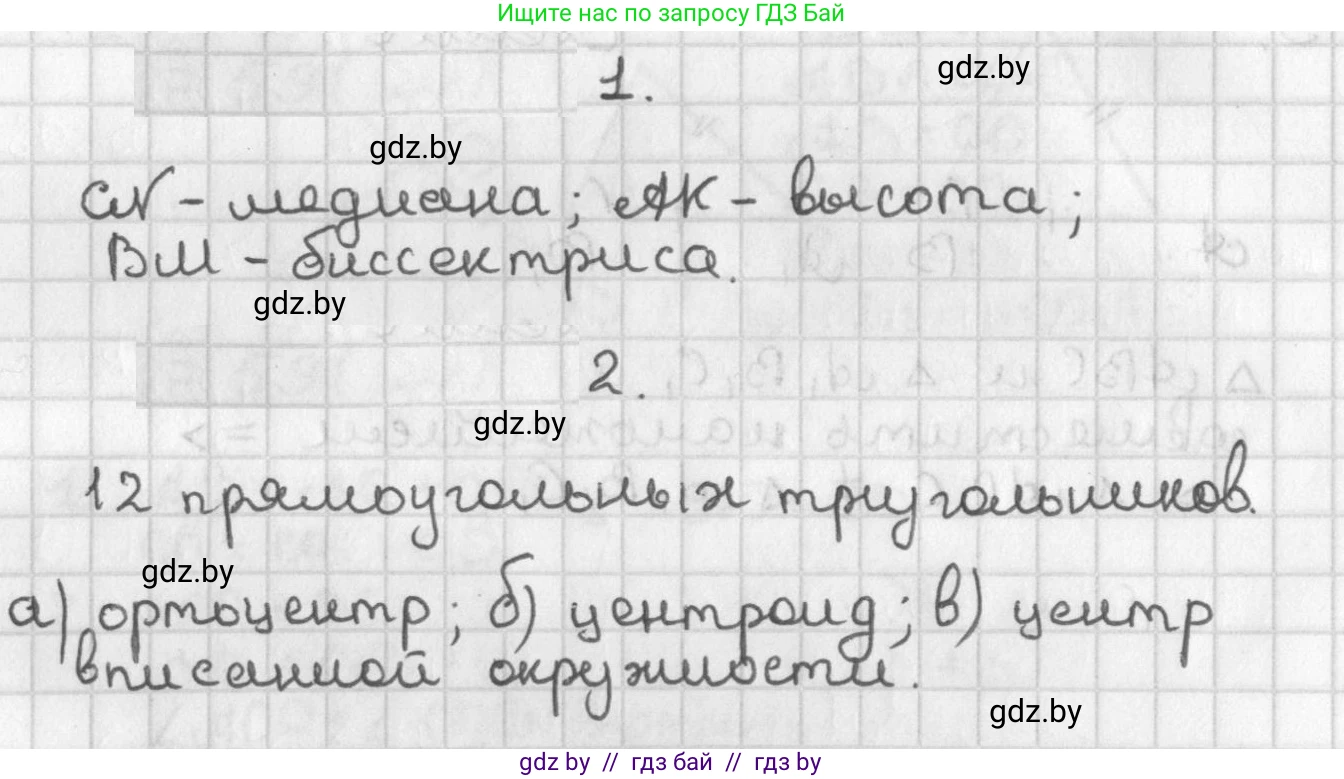 Ищите нас по запросу ГДЗ Бай
1.
gdz.by
gdz.by
CN - медиана; AK - высота;
BM - биссектриса.
gdz.by
2.
gdz.by
12 прямоугольных треугольников.
gdz.by
а) ортоцентр; б) центроид; в) центр
вписанной окружности.
gdz.by
gdz by // гдз бай // гдз by